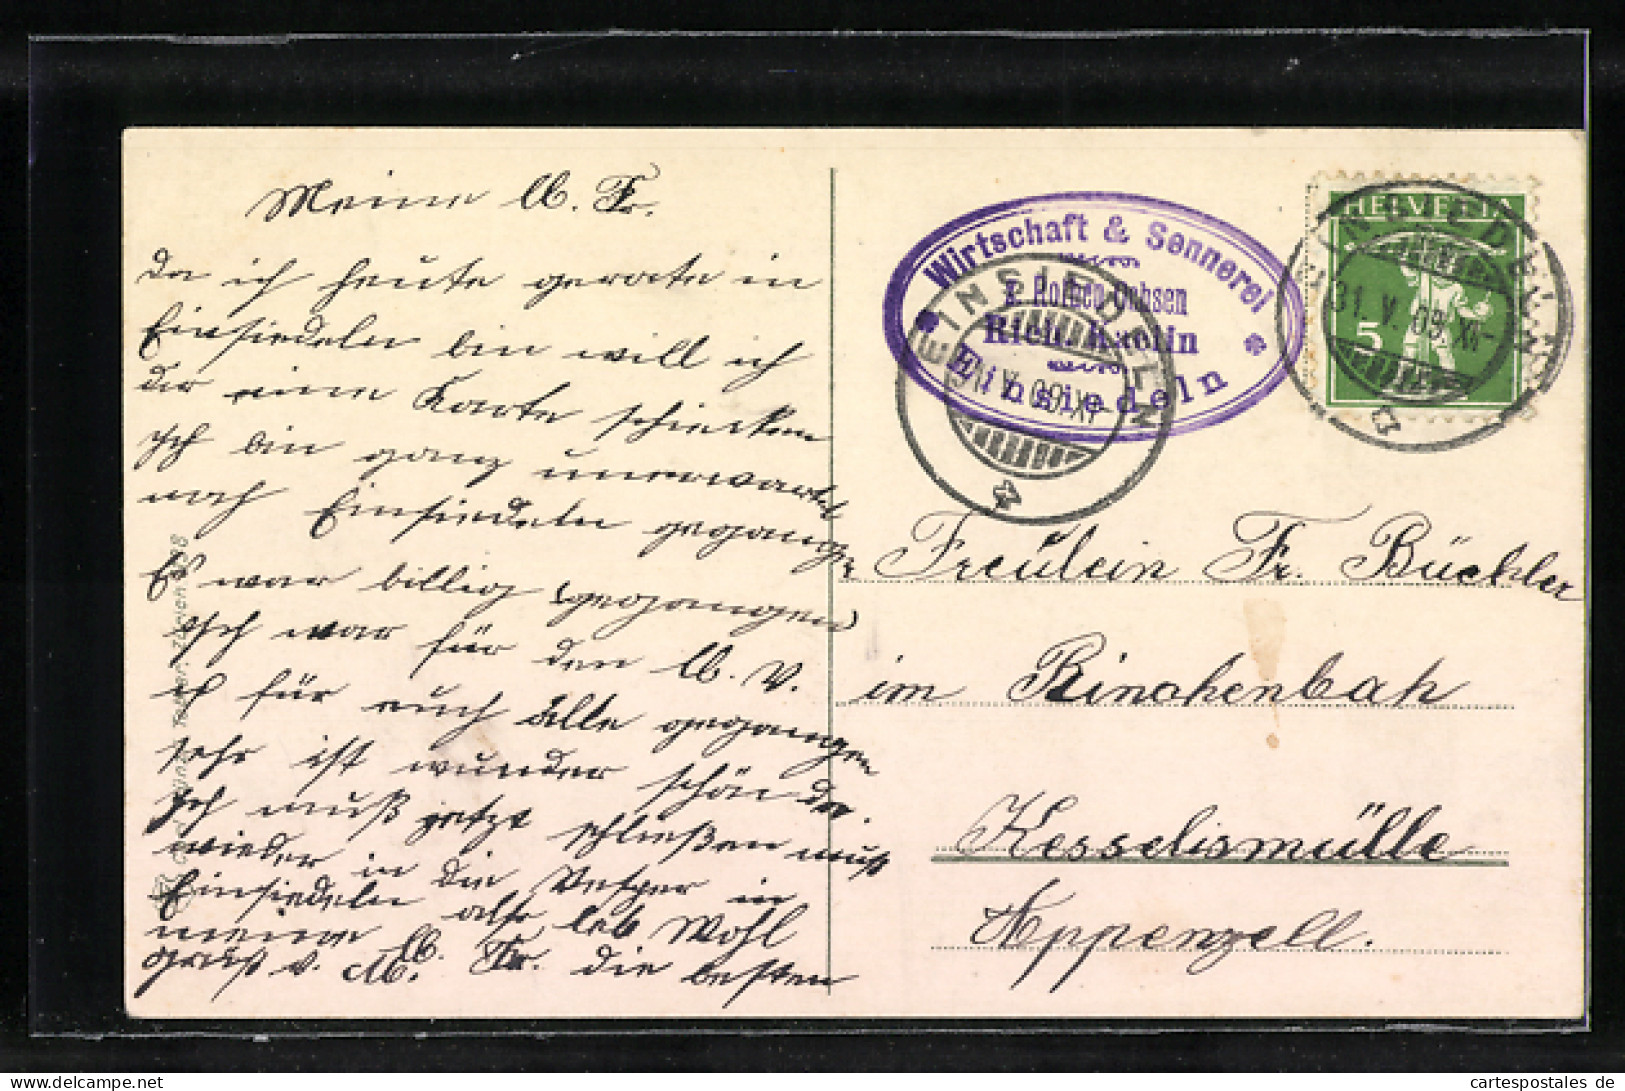 Meine lb. Fr.
da ich heute gerate in
Einsiedeln bin will ich
dir eine Karte schicken
Ich bin ganz unerwartet
nach Einsiedeln gegangen
Es war billig gegangen
Ich war für den lb. V.
ich für euch alle gegangen
sehr ist wunder schön da.
Ich muß jetzt schließen muß
wieder in die Vesper in
Einsiedeln also leb Wohl
meine lb. Fr. die besten
Gruß v.
Wirtschaft & Sennerei
z. Rothen Ochsen
Rich. Kaelin
Einsiedeln
EINSIEDELN
31. V. 09. XI-
HELVETIA
5
EINSIEDELN
31. V. 09. XI-
Freulein Fr. Büchler
im Rinchenbach
Kesselismülle
Appenzell.
www.cartespostales.de